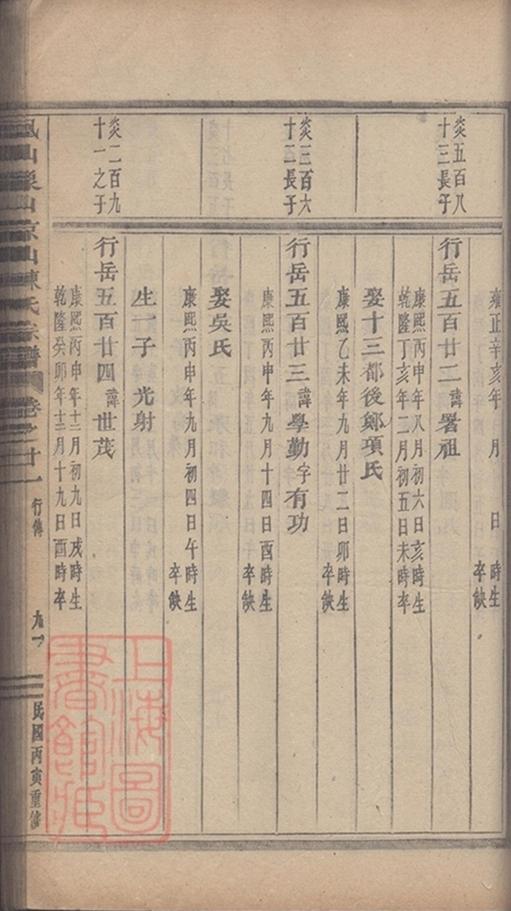 雍正辛亥年 月 日 時生
卒缺
炎五百八
十三長子
行岳五百廿二諱署祖
康熙丙申年八月初六日亥時生
乾隆丁亥年二月初五日未時卒
娶十三都後鄭項氏
康熙乙未年九月廿二日卯時生
卒缺
炎三百六
十二長子
行岳五百廿三諱學勤字有功
康熙丙申年九月十四日酉時生
卒缺
娶吳氏
康熙丙申年九月初四日午時生
卒缺
生一子 光射
炎二百九
十一之子
行岳五百廿四諱世茂
康熙丙申年十二月初九日戌時生
乾隆癸卯年十二月十九日酉時卒
山陳氏宗譜 卷之廿一 行傳 九一 民國丙寅重修
上海圖
書館藏